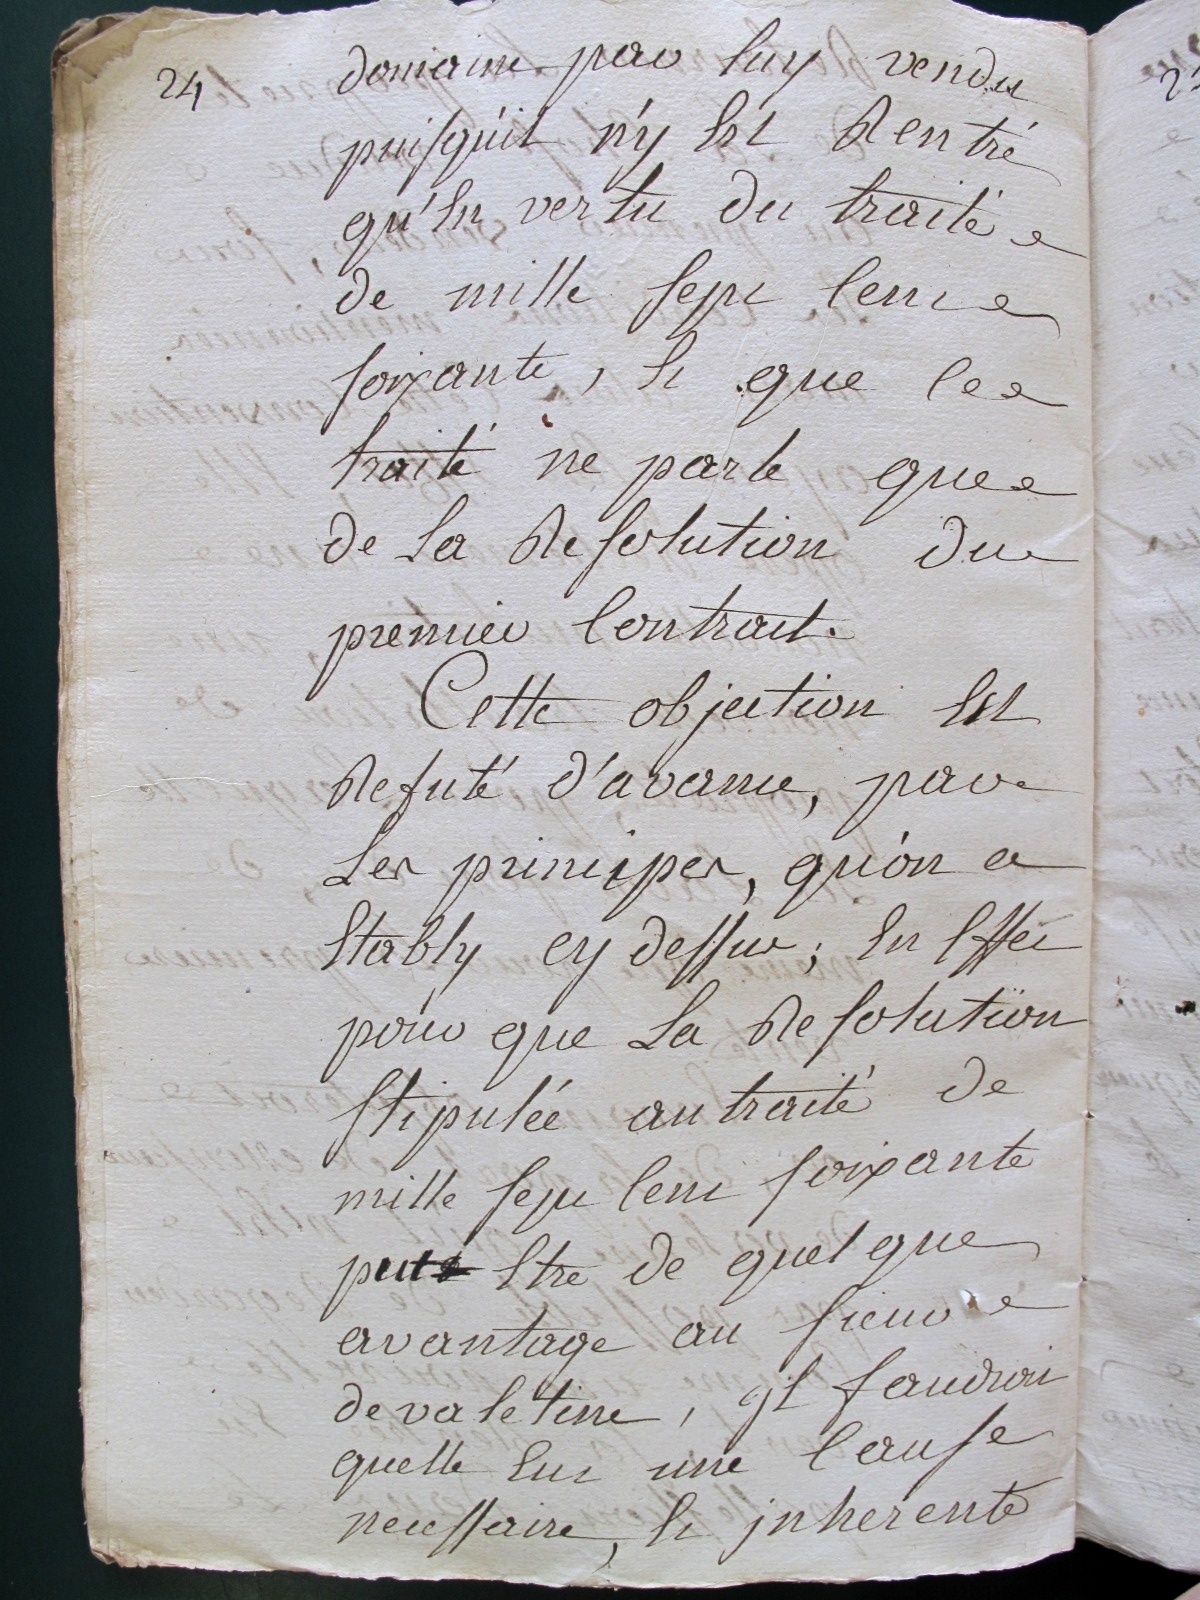 24
domaine par luy vendu
puisqu'il n'y est Rentré
qu'en vertu du traité
de mille sept cent
soixante, et que ce
traité ne parle que
de la Resolution du
premier Contrait.
Cette objection est
Refuté d'avance, par
Les principes, qu'on a
Etably cy dessus; en effet
pour que La Resolution
stipulée au traité de
mille sept cent soixante
put etre de quelque
avantage au sieur
de valetine, il faudroit
quelle eut une cause
necessaire, et inherente